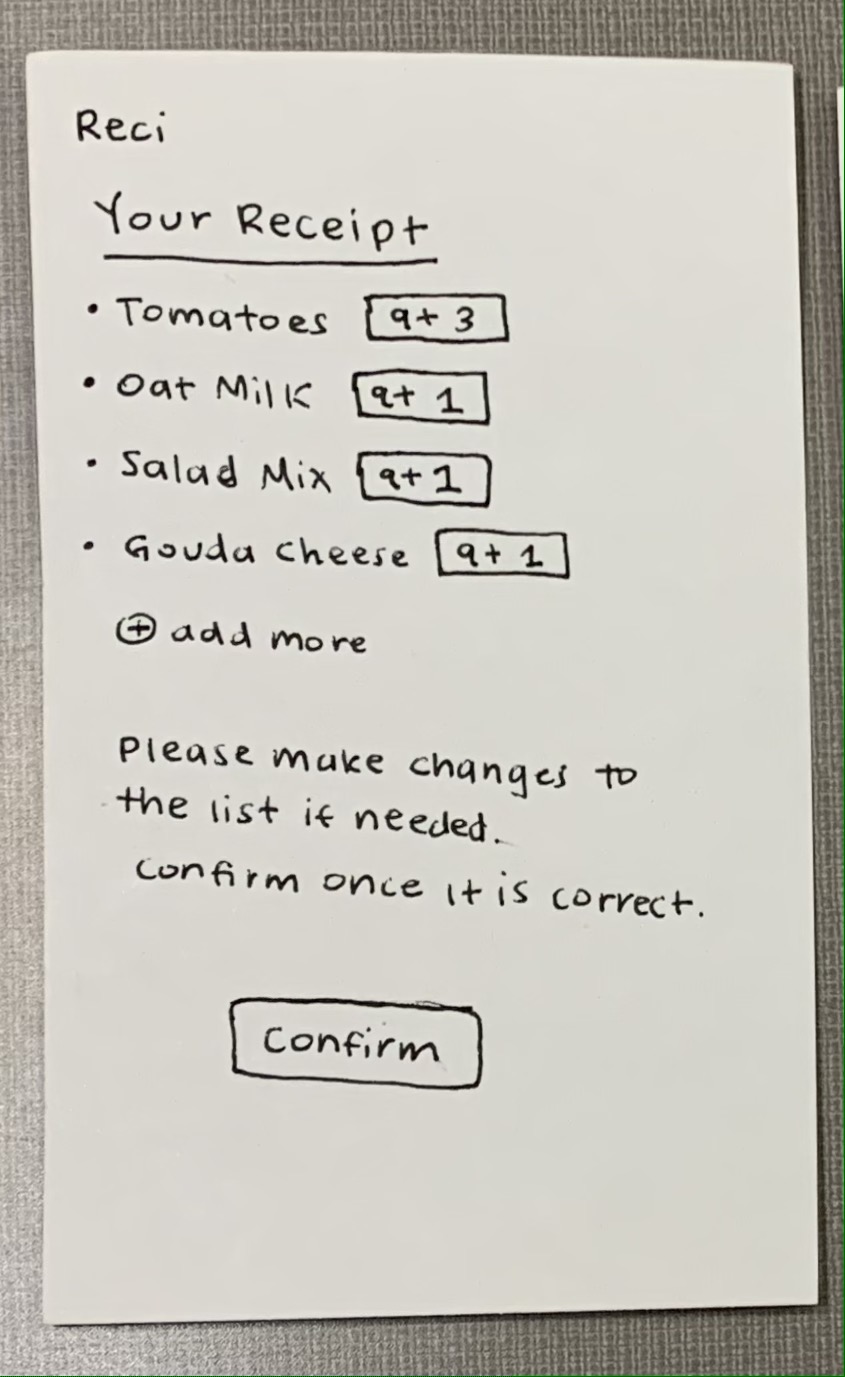 Reci
Your Receipt
• Tomatoes qt 3
• Oat Milk qt 1
• Salad Mix qt 1
• Gouda cheese qt 1
⊕ add more
Please make changes to
the list if needed.
Confirm once it is correct.
Confirm